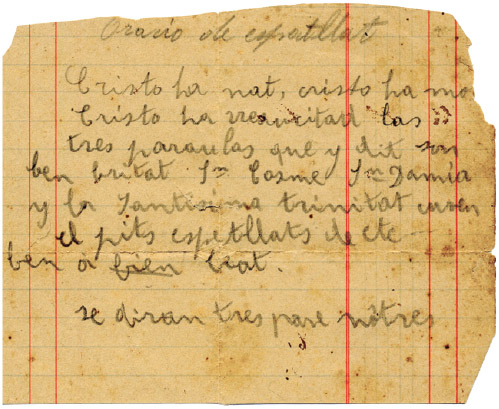 Orasió de espatllat
Cristo ha nat, cristo ha mo
Cristo ha rresucitad las
tres paraulas que y dit son
ben britat Sn Cosme Sn Damia
y la Santisima trinitat curen
el pits espetllats de etc
ben o bien brat.
se diran tres pare nòtres